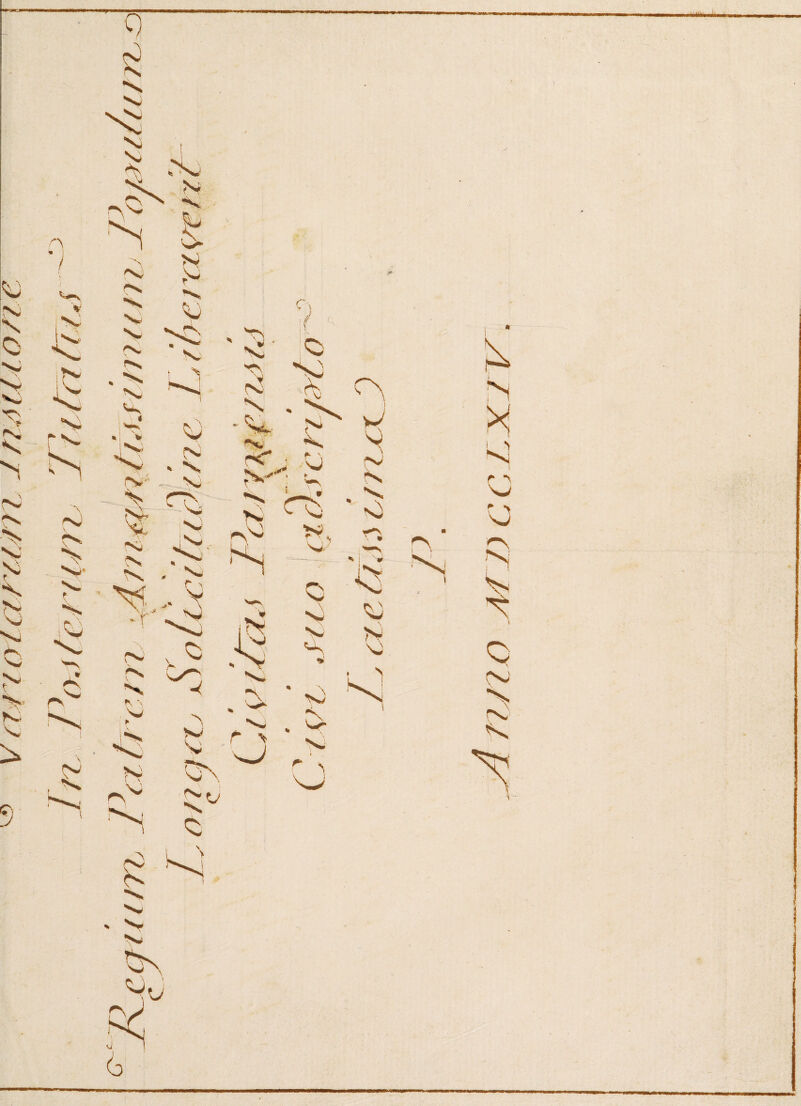 Variolarum Insitione
In Posterum Tutatus
Regium Patrem Amantissimum Populum
Longa Solicitudine Liberaverit
Civitas Parmensis
Civi suo adscripto
Laetissima
P.
Anno MDCCLXIV.